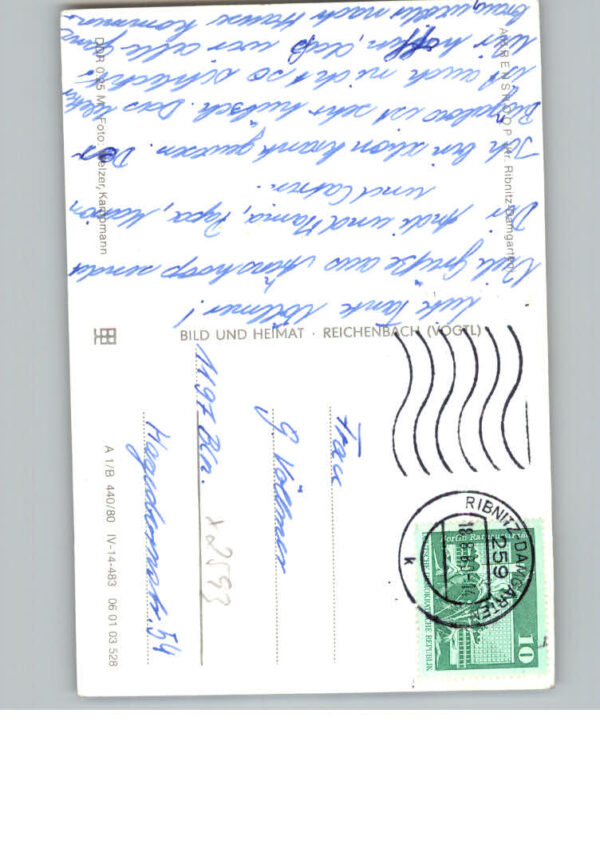 AHRENSHOOP Kr. Ribnitz-Damgarten
Liebe Tante Vollmer!
Viele Grüße aus Ahrenshoop sendet
Dir Andi und Mama, Papa,
und Catrin.
Ich bin schon krank gewesen. Der
Bungalow ist sehr hübsch. Das Wetter
ist auch nicht so schlecht.
Wir hoffen, daß wir alle
braun wieder nach Hause kommen
DDR 0,25 M Foto: Melzer, Kampmann
BILD UND HEIMAT · REICHENBACH (VOGTL)
RIBNITZ-DAMGARTEN
259
k
Berlin
DEUTSCHE DEMOKRATISCHE REPUBLIK
10
Frau
G. Vollmer
1197 Bln.
x2593
54
A 1/B 440/80 IV-14-483 06 01 03 528